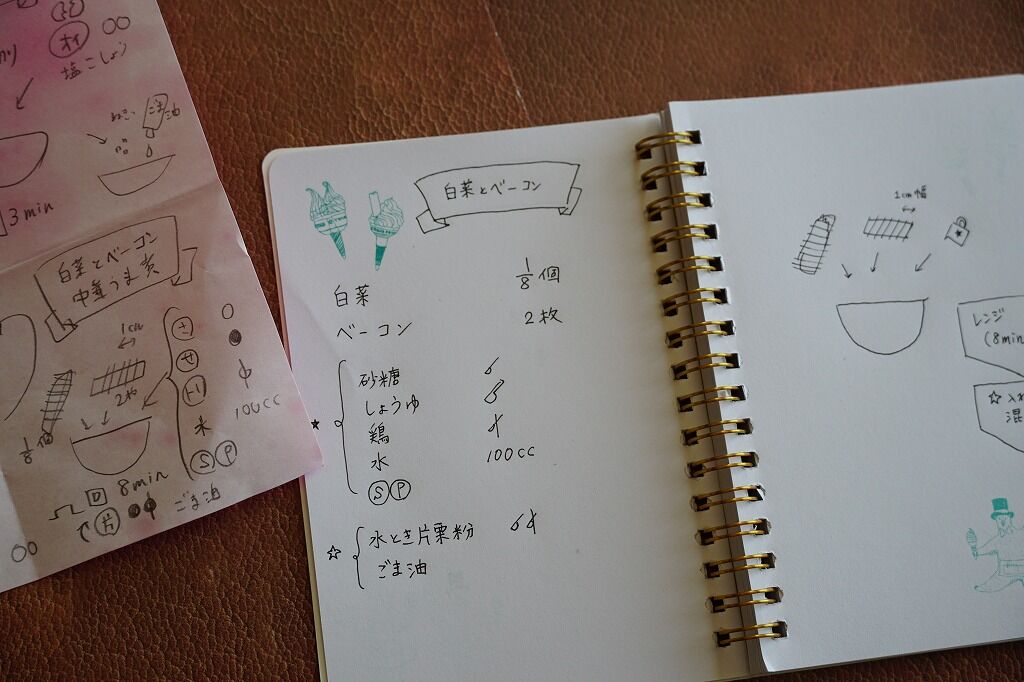 オイ
塩こしょう
ごま油
3min
白菜とベーコン
中華うま煮
1cm
さ
せ
トリ
水 100cc
S P
2枚
1/8個
8min
片 ごま油
白菜とベーコン
白菜 1/8個
ベーコン 2枚
★
砂糖
しょうゆ
鶏
水 100cc
S P
☆
水とき片栗粉
ごま油
1cm幅
★
レンジ
(8min
☆入れ
混